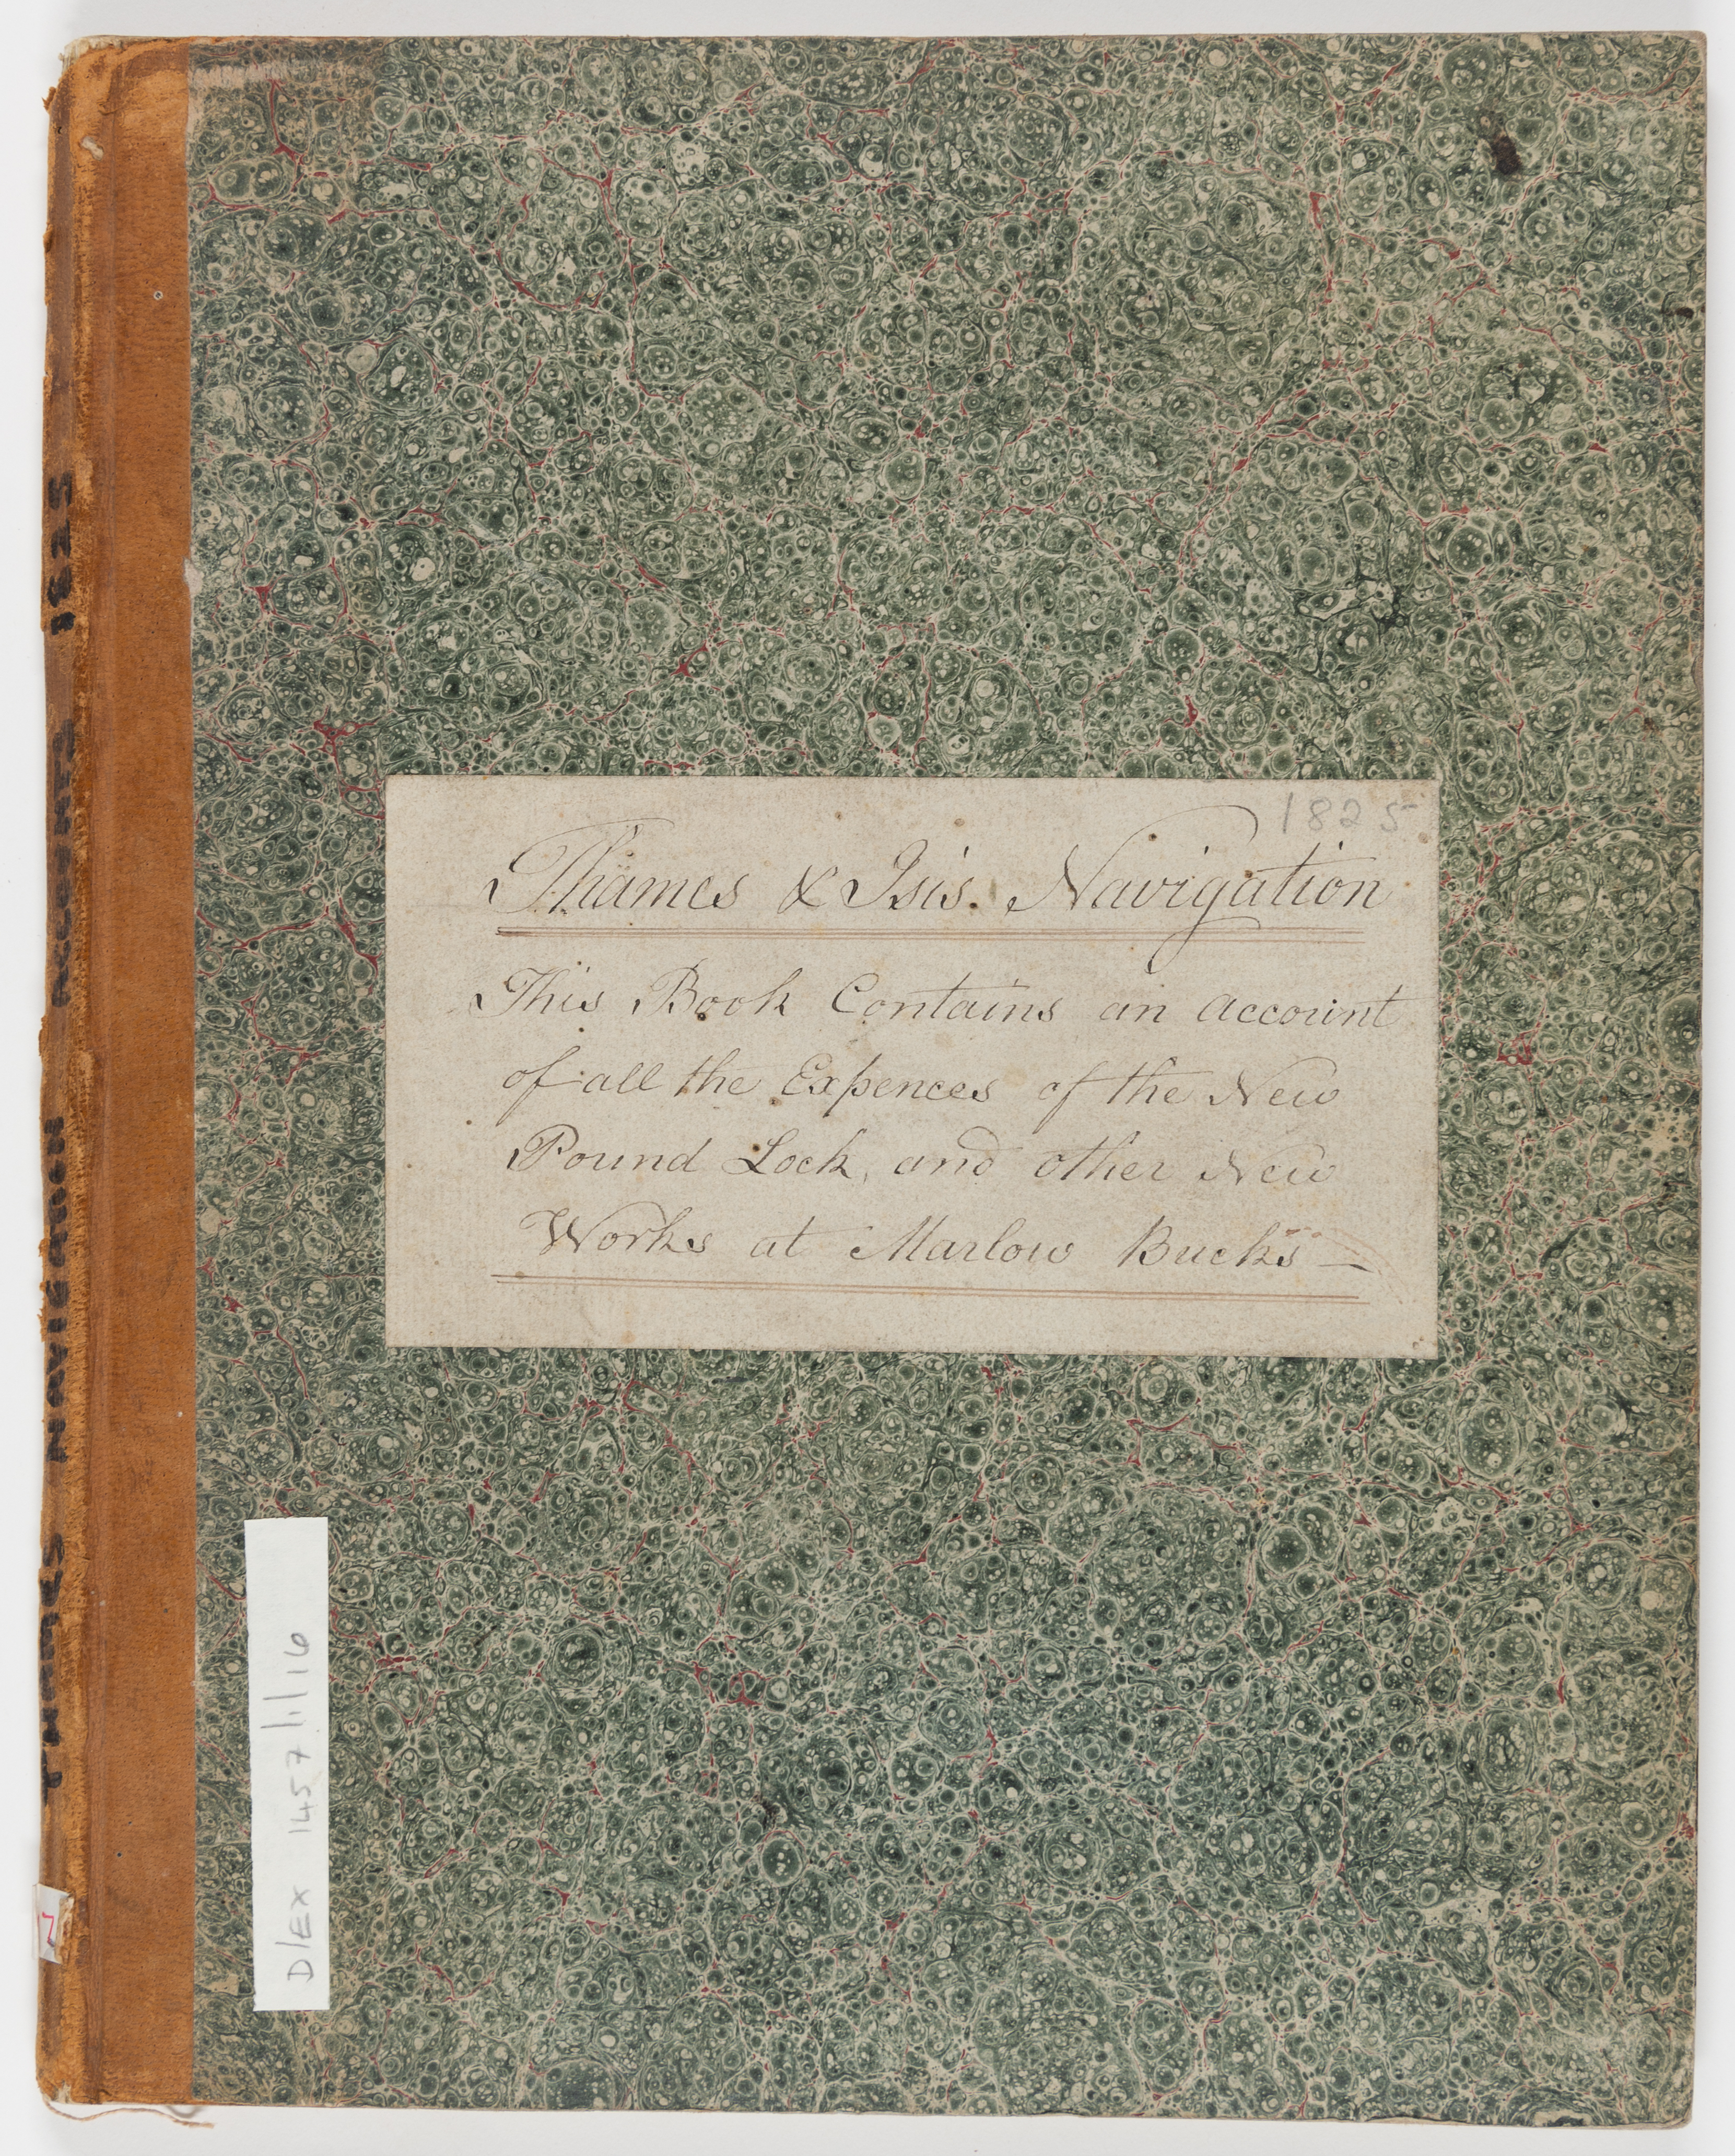 1825
Thames & Isis. Navigation
This Book Contains an account
of all the Expences of the New
Pound Lock, and other New
Works at Marlow Bucks —
D/EX 1457/1/16
THAMES NAVIGATION ACCOUNTS 1825